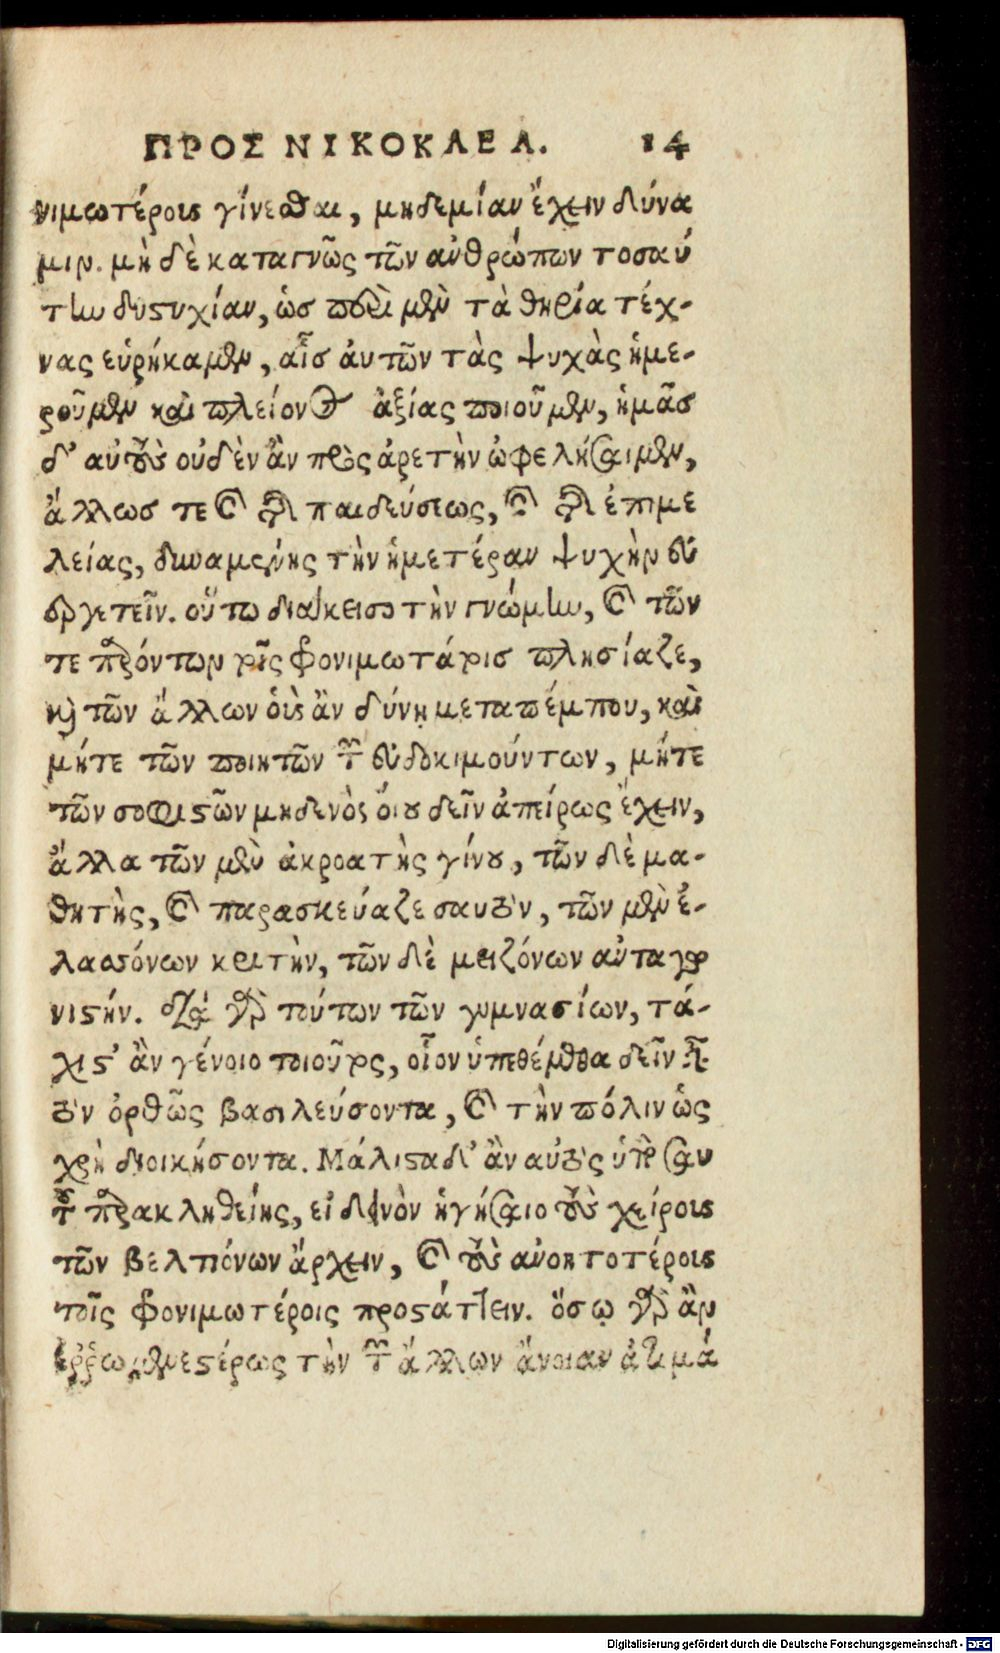 ΠΡΟΣ ΝΙΚΟΚΛΕΑ. 14
νιμωτέροις γίνεσθαι, μηδεμίαν ἔχειν δύνα
μιν. μὴ δὲ καταγνῷς τῶν ἀνθρώπων τοσαύ
την δυστυχίαν, ὡς περὶ μὲν τὰ θηρία τέχ-
νας εὑρήκαμεν, αἷς ἀυτῶν τὰς ψυχὰς ἡμε-
ροῦμεν καὶ πλείονος ἀξίας ποιοῦμεν, ἡμᾶς
δ' αὐτοὺς οὐδὲν ἂν πρὸς ἀρετὴν ὠφελήσαιμεν,
ἄλλως τε καὶ τῆς παιδεύσεως, καὶ τῆς ἐπιμε
λείας, δυναμένης τὴν ἡμετέραν ψυχὴν εὐ
εργετεῖν. οὕτω διάκεισο τὴν γνώμην, καὶ τῶν
τε παρόντων τοῖς φρονιμωτάτοις πλησίαζε,
καὶ τῶν ἄλλων οὓς ἂν δύνῃ μεταπέμπου, καὶ
μήτε τῶν ποιητῶν τῶν εὐδοκιμούντων, μήτε
τῶν σοφιστῶν μηδενὸς οἴου δεῖν ἀπείρως ἔχειν,
ἄλλα τῶν μὲν ἀκροατὴς γίνου, τῶν δὲ μα-
θητὴς, καὶ παρασκεύαζε σαυτὸν, τῶν μὲν ἐ-
λασσόνων κριτὴν, τῶν δὲ μειζόνων ἀνταγω
νιστήν. διὰ γὰρ τούτων τῶν γυμνασίων, τά-
χιστ' ἂν γένοιο τοιοῦτος, οἷον ὑπεθέμεθα δεῖν εἶναι
τὸν ὀρθῶς βασιλεύσοντα, καὶ τὴν πόλιν ὡς
χρὴ διοικήσοντα. Μάλιστα δ' ἂν αὐτὸς ὑπὸ σαυ
τοῦ παρακληθείης, εἰ δεινὸν ἡγήσαιο τοὺς χείροις
τῶν βελτιόνων ἄρχειν, καὶ τοὺς ἀνοητοτέροις
τοῖς φρονιμωτέροις προστάττειν. ὅσῳ γὰρ ἂν
ἐρρωμενεστέρως τὴν τῶν ἄλλων ἄνοιαν ἀτιμά
Digitalisierung gefördert durch die Deutsche Forschungsgemeinschaft - DFG